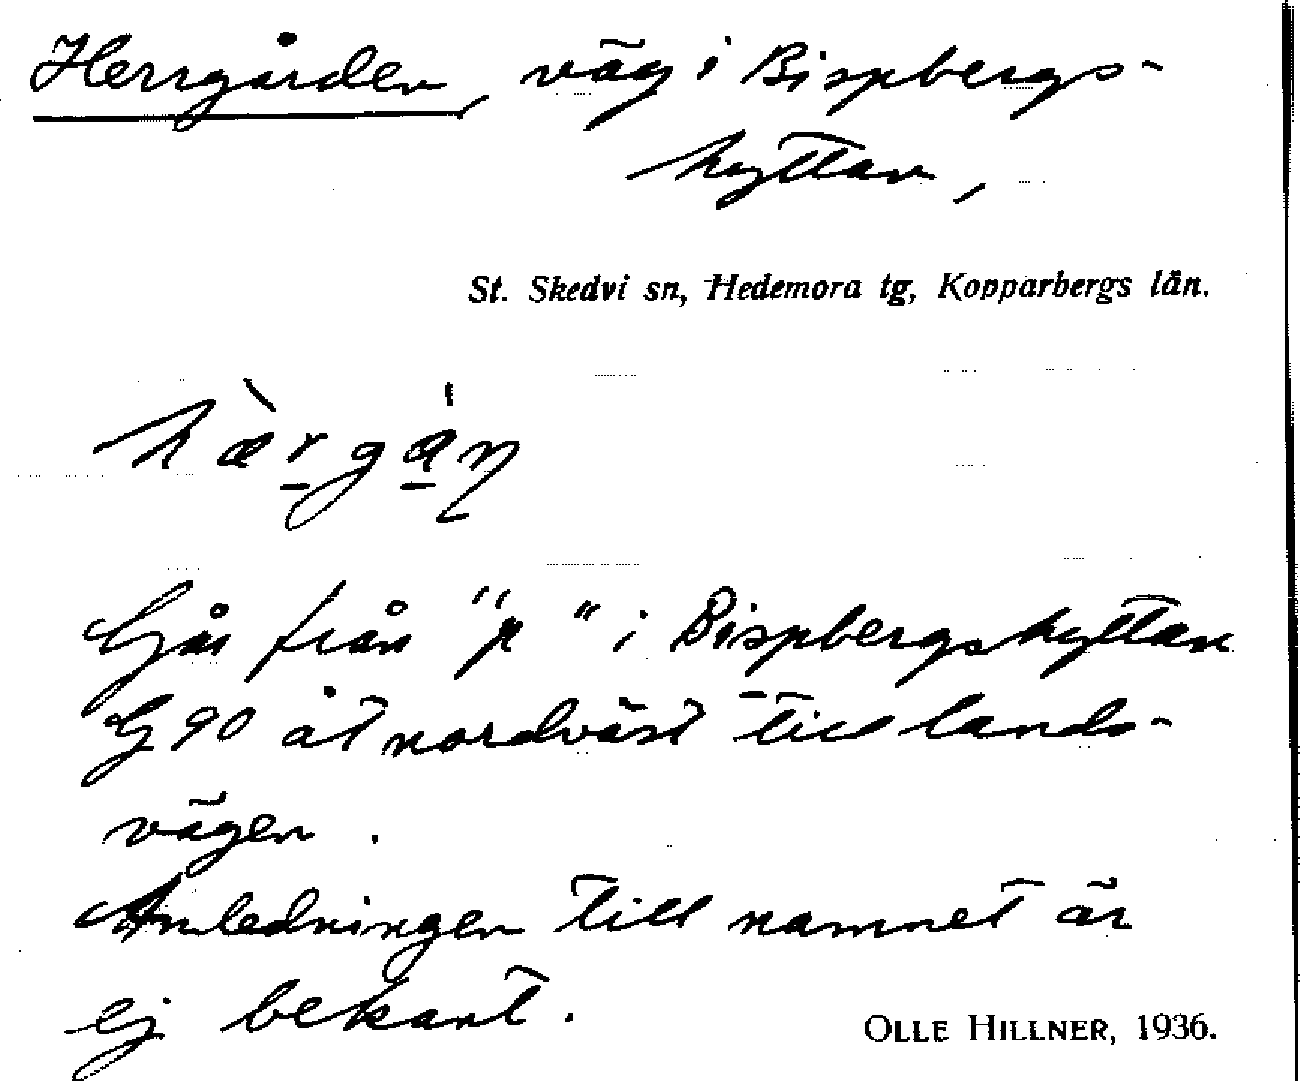 Herrgården, väg i Bispbergs-
hyttan,
St. Skedvi sn, Hedemora tg, Kopparbergs län.
hæ̀rgąņ
Går från "p" i Bispbergshyttan
G 90 åt nordväst till lands-
vägen.
Anledningen till namnet är
ej bekant.
OLLE HILLNER, 1936.